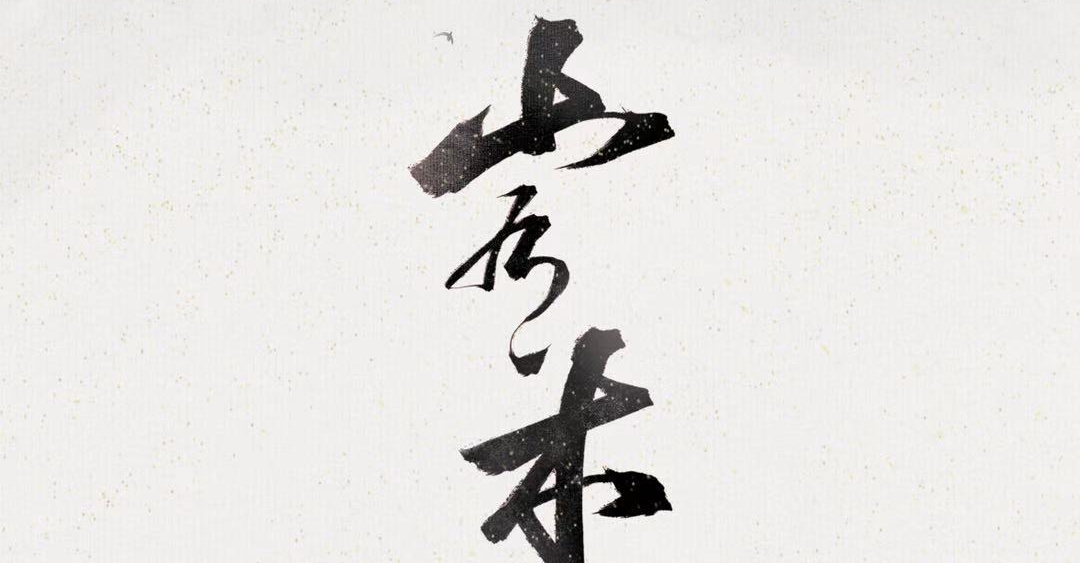 山有木